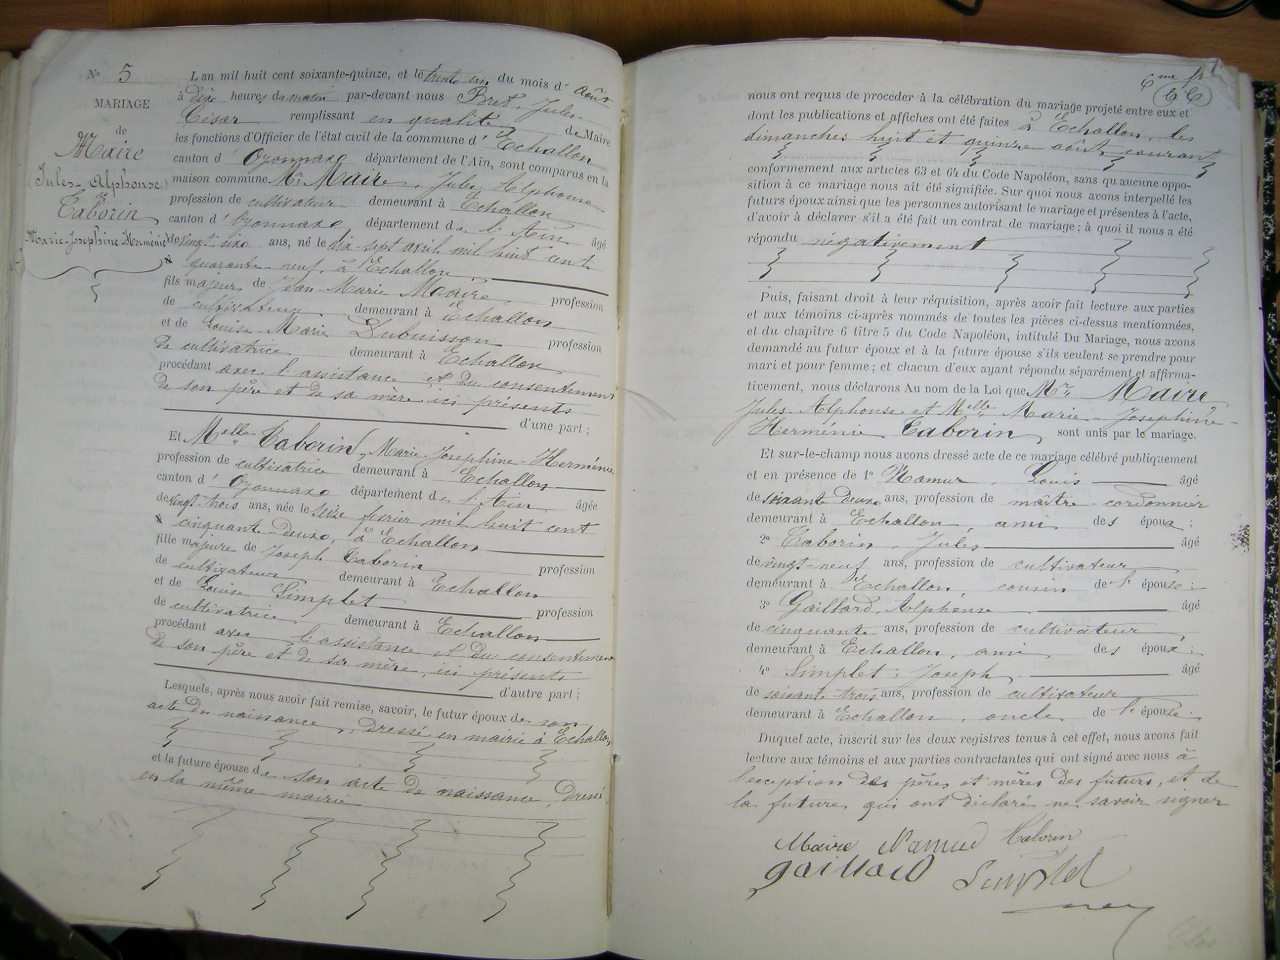 N° 5
MARIAGE
de
Maire
(Jules-Alphonse)
&
Taborin
Marie-Josephine Herménie
L'an mil huit cent soixante-quinze, et le trente un du mois d' août
à dix heures du matin par-devant nous Bret, Jules
César remplissant en qualité de Maire
les fonctions d'Officier de l'état civil de la commune d' Echallon
canton d' Oyonnaxe département de l'Ain, sont comparus en la
maison commune Mr Maire, Jules Alphonse
profession de cultivateur demeurant à Echallon
canton d' Oyonnaxe département de l'Ain âgé
de vingt six ans, né le dix sept avril mil huit cent
quarante neuf, à Echallon
fils majeur de Jean Marie Maire, profession
de cultivateur, demeurant à Echallon
et de Louise Marie Dubuisson profession
de cultivatrice demeurant à Echallon
procédant avec l'assistance et du consentement
de son père et de sa mère ici présents
d'une part ;
Et Melle Taborin (Marie-Josephine-Herménie
profession de cultivatrice demeurant à Echallon
canton d' Oyonnaxe département de l'Ain âgée
de vingt-trois ans, née le seize février mil huit cent
cinquante deux, à Echallon
fille majeure de Joseph Taborin profession
de cultivateur demeurant à Echallon
et de Louise Simplet profession
de cultivatrice, demeurant à Echallon
procédant avec l'assistance et du consentement
de son père et de sa mère, ici présents
d'autre part ;
Lesquels, après nous avoir fait remise, savoir, le futur époux de son
acte de naissance, dressé en mairie à Echallon
et la future épouse de son acte de naissance, dressé
en la même mairie
6me
nous ont requis de procéder à la célébration du mariage projeté entre eux et
dont les publications et affiches ont été faites à Echallon, les
dimanches huit et quinze août courant
conformement aux articles 63 et 64 du Code Napoléon, sans qu'aucune oppo-
sition à ce mariage nous ait été signifiée. Sur quoi nous avons interpellé les
futurs époux ainsi que les personnes autorisant le mariage et présentes à l'acte,
d'avoir à déclarer s'il a été fait un contrat de mariage ; à quoi il nous a été
répondu négativement
Puis, faisant droit à leur réquisition, après avoir fait lecture aux parties
et aux témoins ci-après nommés de toutes les pièces ci-dessus mentionnées,
et du chapitre 6 titre 5 du Code Napoléon, intitulé Du Mariage, nous avons
demandé au futur époux et à la future épouse s'ils veulent se prendre pour
mari et pour femme ; et chacun d'eux ayant répondu séparément et affirma-
tivement, nous déclarons Au nom de la Loi que Mr Maire
Jules-Alphonse et Melle Marie-Josephine-
Herménie Taborin, sont unis par le mariage.
Et sur-le-champ nous avons dressé acte de ce mariage célébré publiquement
et en présence de 1° Namur, Louis âgé
de soixante deux ans, profession de maître cordonnier
demeurant à Echallon, ami des époux ;
2° Taborin, Jules âgé
de vingt-neuf ans, profession de cultivateur
demeurant à Echallon, cousin de l'épouse ;
3° Gaillard, Alphonse âgé
de cinquante ans, profession de cultivateur,
demeurant à Echallon, ami des époux ;
4° Simplet, Joseph, âgé
de soixante trois ans, profession de cultivateur
demeurant à Echallon, oncle de l'épouse.
Duquel acte, inscrit sur les deux registres tenus à cet effet, nous avons fait
lecture aux témoins et aux parties contractantes qui ont signé avec nous à
l'exception des pères et mères des futurs, et de
la future, qui ont déclaré ne savoir signer
Maire Namur Taborin
gaillard Simplet